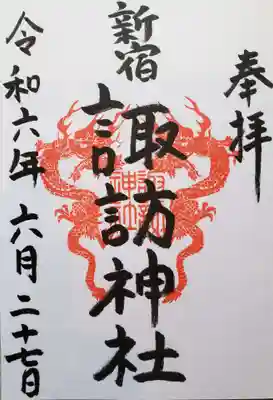 奉拝
新宿
諏訪神社
令和六年六月二十七日